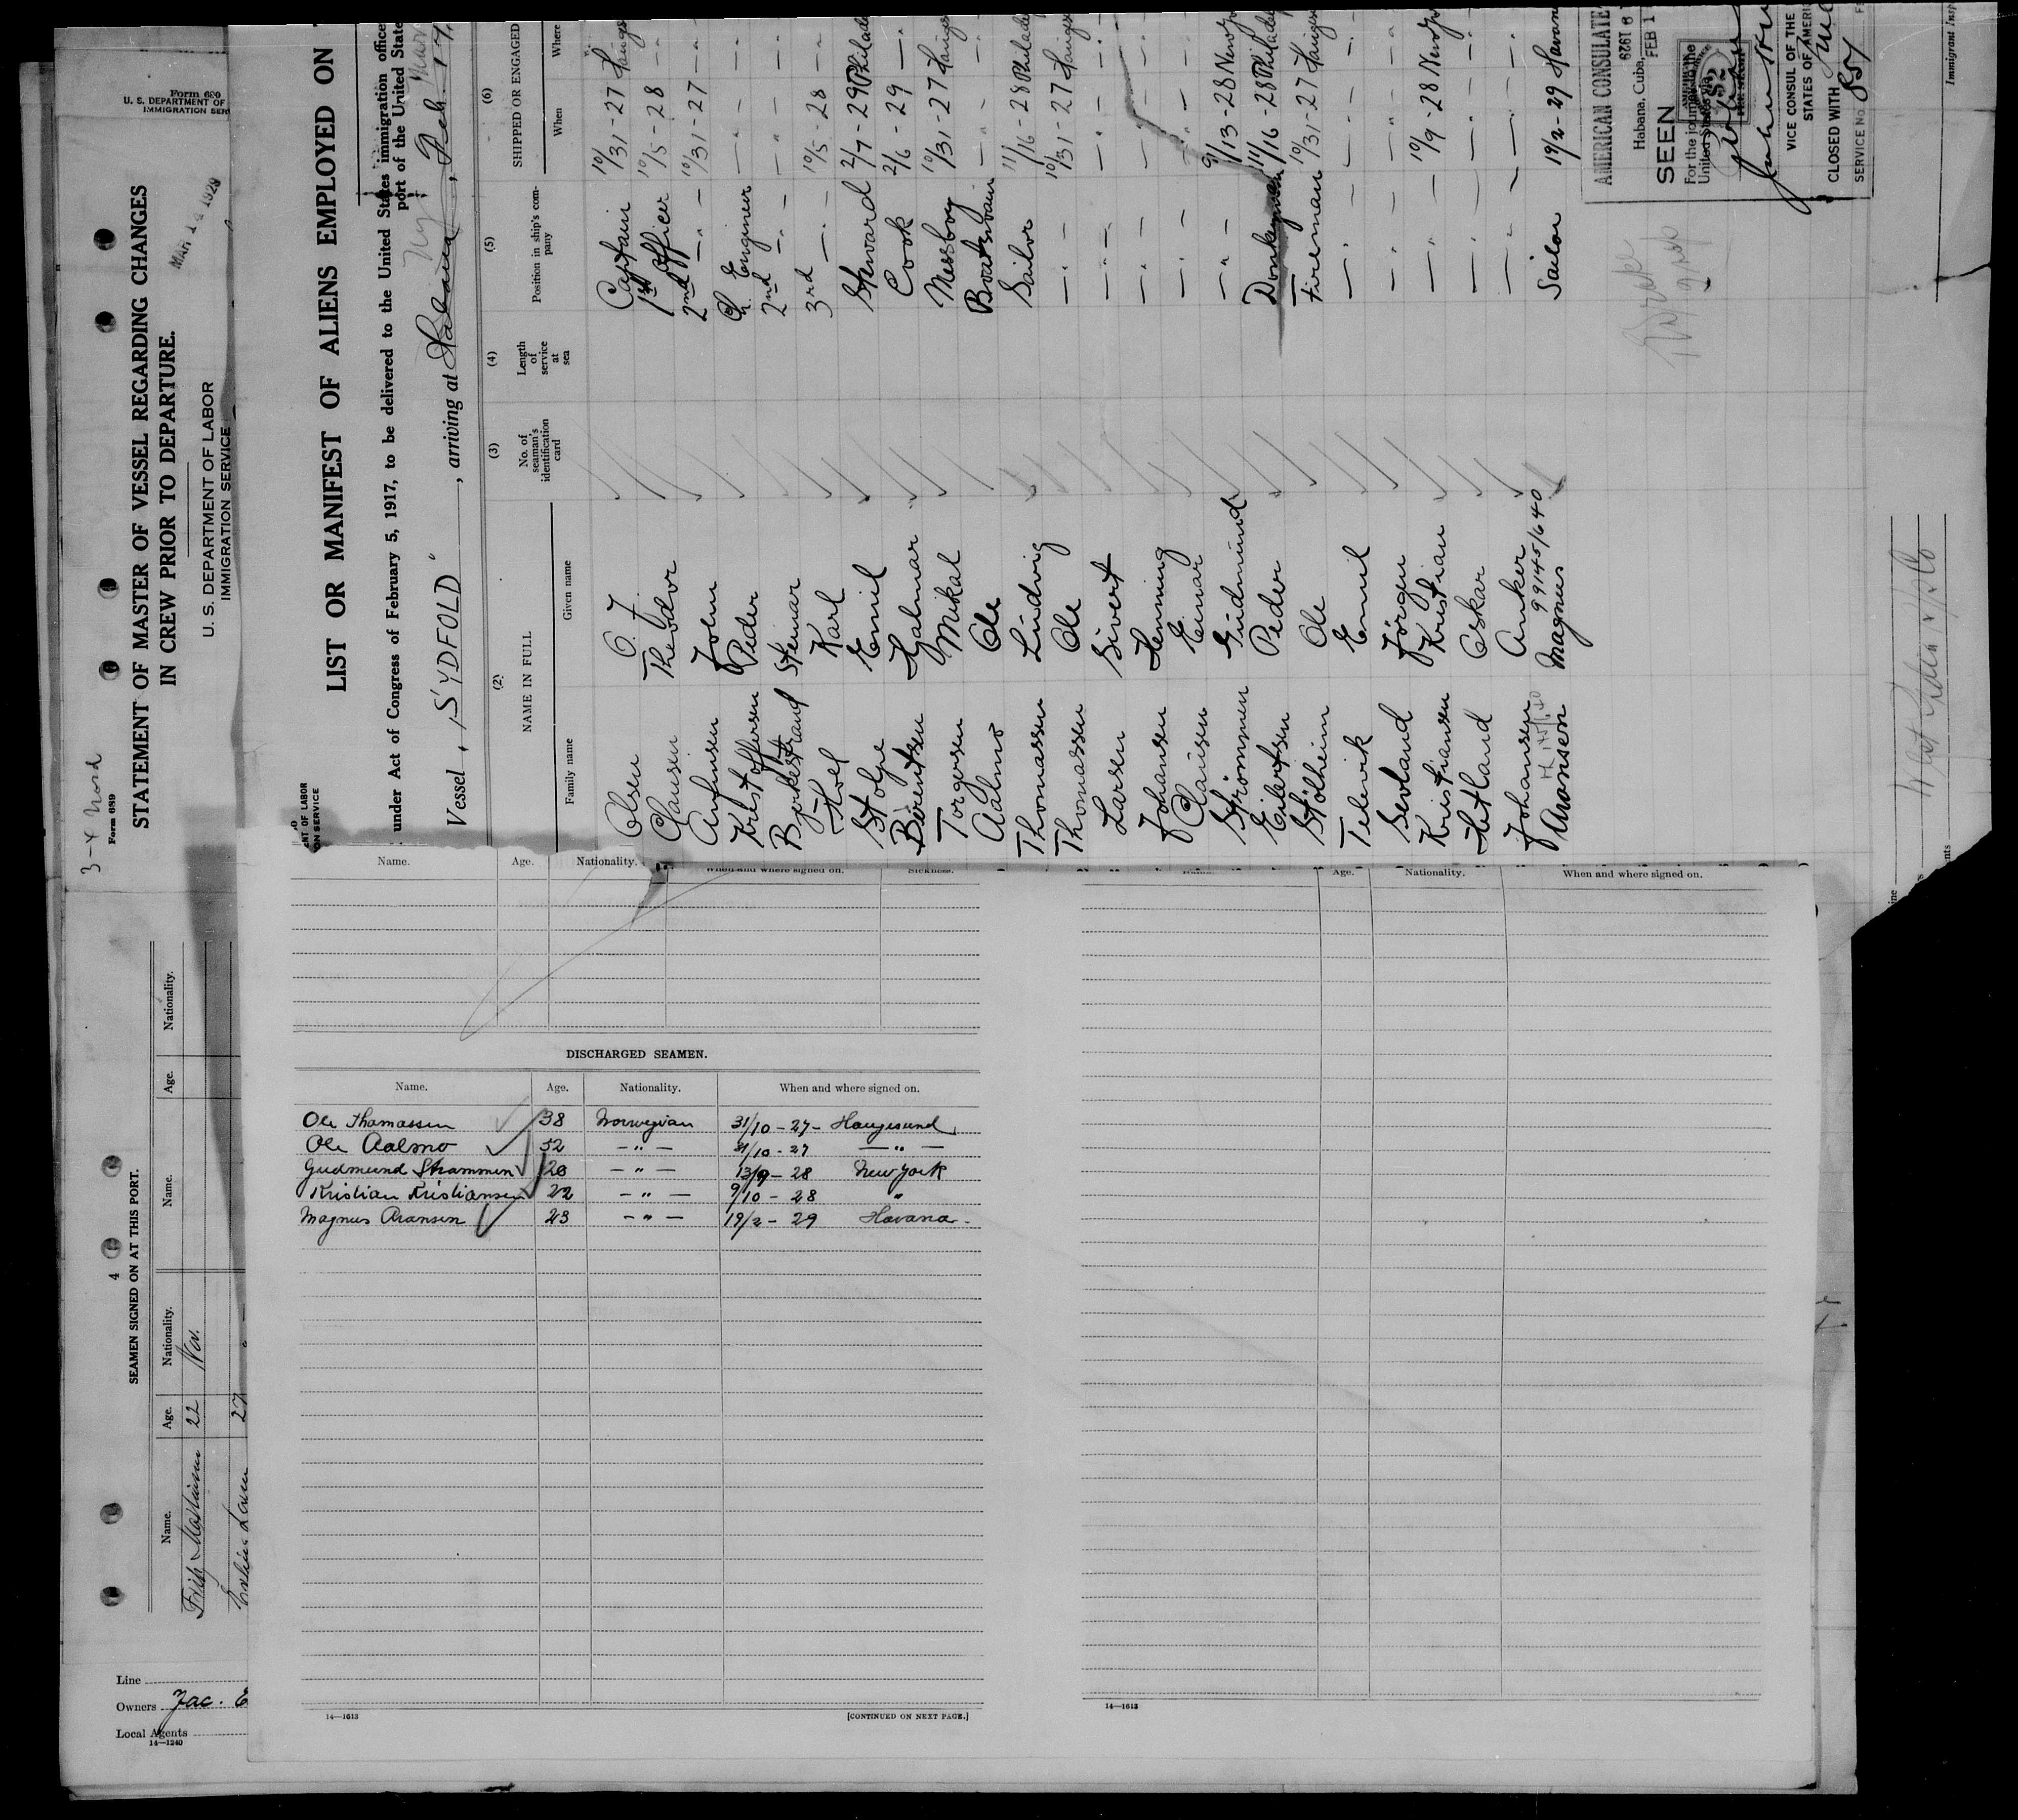 Form 689
STATEMENT OF MASTER OF VESSEL REGARDING CHANGES
IN CREW PRIOR TO DEPARTURE.
U. S. DEPARTMENT OF LABOR
IMMIGRATION SERVICE
4
SEAMEN SIGNED ON AT THIS PORT.
Name. Age. Nationality. Name. Age. Nationality.
22 Nor.
27
Form 680
U. S. DEPARTMENT OF
IMMIGRATION SERV
Line
Owners Jac.
Local Agents
14—1240
LIST OR MANIFEST OF ALIENS EMPLOYED ON
under Act of Congress of February 5, 1917, to be delivered to the United States immigration office
port of the United State
Vessel "SYDFOLD", arriving at Habana, Feb. 17
(2) (3) (4) (5) (6)
NAME IN FULL
No. of seaman's identification card
Length of service at sea
Position in ship's company
SHIPPED OR ENGAGED
Family name Given name When Where
Olsen O. J. Captain 10/31-27 Hauges
Clausen Theodor 1st Officer 10/5-28 - " -
Arfinsen John 2nd - " - 10/31-27 - " -
Kristoffersen Peder Ch. Engineer - " - - " -
Bjerkestrand Steinar 2nd - " - - " - - " -
Hoel Karl 3rd - " - 10/5-28 - " -
Stolpe Emil Steward 2/7-29 Philade
Berentsen Hjalmar Cook 2/6-29 - " -
Torgersen Mikal Messboy 10/31-27 Hauges
Aalmo Ole Boatswain - " - - " -
Thomassen Ludvig Sailor 11/16-28 Philade
Thomassen Ole - " - 10/31-27 Hauges
Larsen Sivert - " - - " - - " -
Johansen Henning - " - - " - - " -
Clausen Einar - " - - " - - " -
Strømmen Gudmund - " - 9/13-28 New Yo
Eilertsen Peder Donkeyman 11/16-28 Philade
Stølheim Ole Fireman 10/31-27 Hauges
Emil - " - - " - - " -
Sevland Jørgen - " - - " - - " -
Kristiansen Kristian - " - 10/9-28 New Yo
Hetland Oskar - " - - " - - " -
Johansen Anker - " - - " - - " -
99145/640
Aronsen Magnus Sailor 19/2-29 Havan
AMERICAN CONSULATE
Habana, Cuba,
FEB 1
SEEN
For the journey to the
United States
VICE CONSUL OF THE
STATES OF AMERI
CLOSED WITH
SERVICE No. 857
Immigrant Insp
Name. Age. Nationality. When and where signed on. Sickness.
DISCHARGED SEAMEN.
Name. Age. Nationality. When and where signed on.
Ole Thomassen 38 Norwegian 31/10-27- Haugesund
Ole Aalmo 52 - " - 31/10-27 - " -
Gudmund Strømmen 20 - " - 13/9-28 New York
Kristian Kristiansen 22 - " - 9/10-28 "
Magnus Aronsen 23 - " - 19/2-29 Havana
14—1613
[CONTINUED ON NEXT PAGE.]
Name. Age. Nationality. When and where signed on.
14—1613